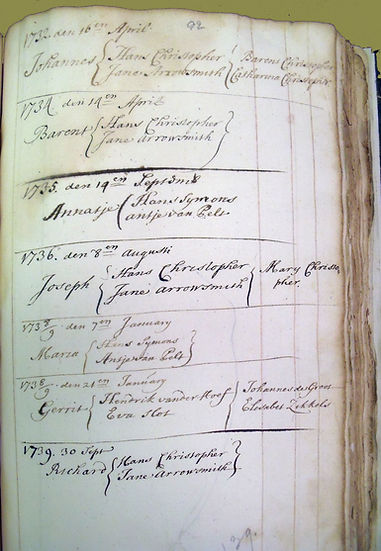 92
1732. den 16en April
Johannes { Hans Christopher { Barent Christopher
Jane Arrowsmith { Catharina Christopher
1734 den 14en April
Barent { Hans Christopher
Jane Arrowsmith }
1735. den 14en Septemb
Annatje { Hans Symons
antje van Pelt
1736. den 8en augusti
Joseph { Hans Christopher } Mary Christo
Jane Arrowsmith } pher.
1738/9 den 7en January
Maria { Hans Symons
Antje van Pelt }
1738/9. den 21en January
Gerrit { Hendrik vander Hoef { Johannes de Groot
Eva Slot { Elisabet
1739. 30 Sept
Richard { Hans Christopher
Jane Arrowsmith }